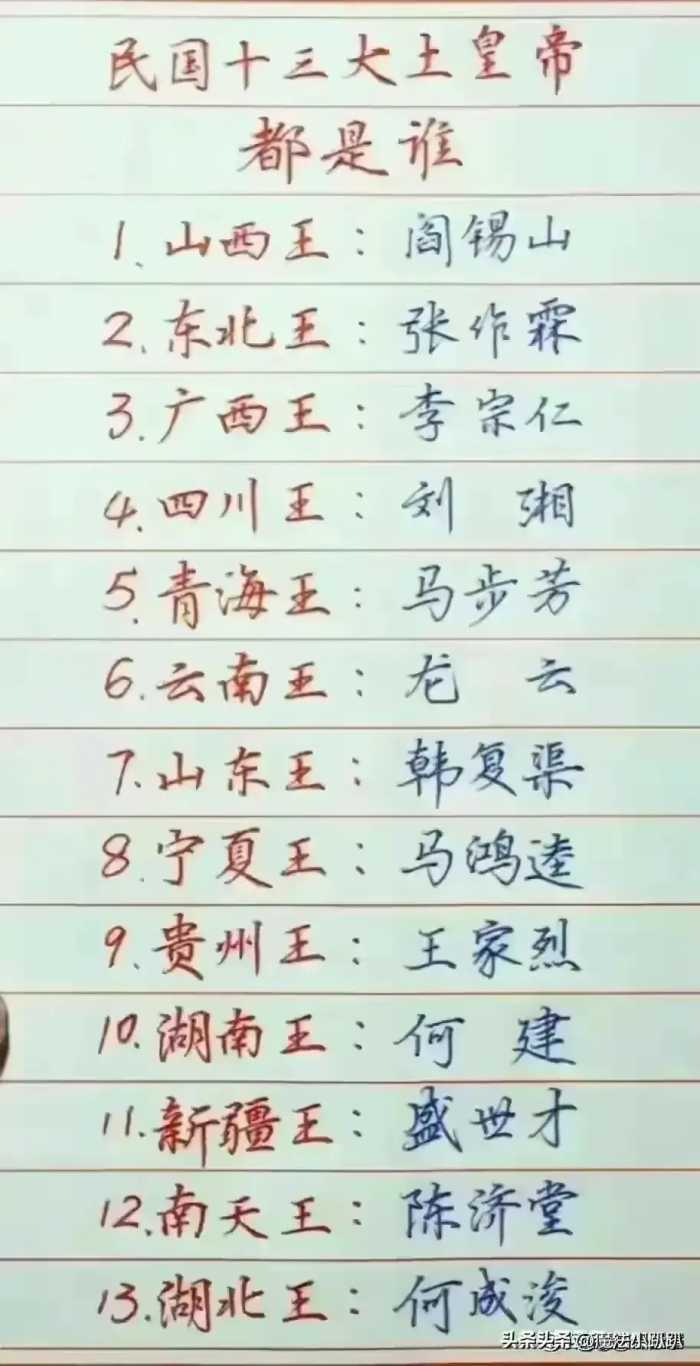 民国十三大土皇帝
都是谁
1.山西王：阎锡山
2.东北王：张作霖
3.广西王：李宗仁
4.四川王：刘 湘
5.青海王：马步芳
6.云南王：龙 云
7.山东王：韩复渠
8.宁夏王：马鸿逵
9.贵州王：王家烈
10.湖南王：何 建
11.新疆王：盛世才
12.南天王：陈济堂
13.湖北王：何成浚
头条头条@魔法小趴趴